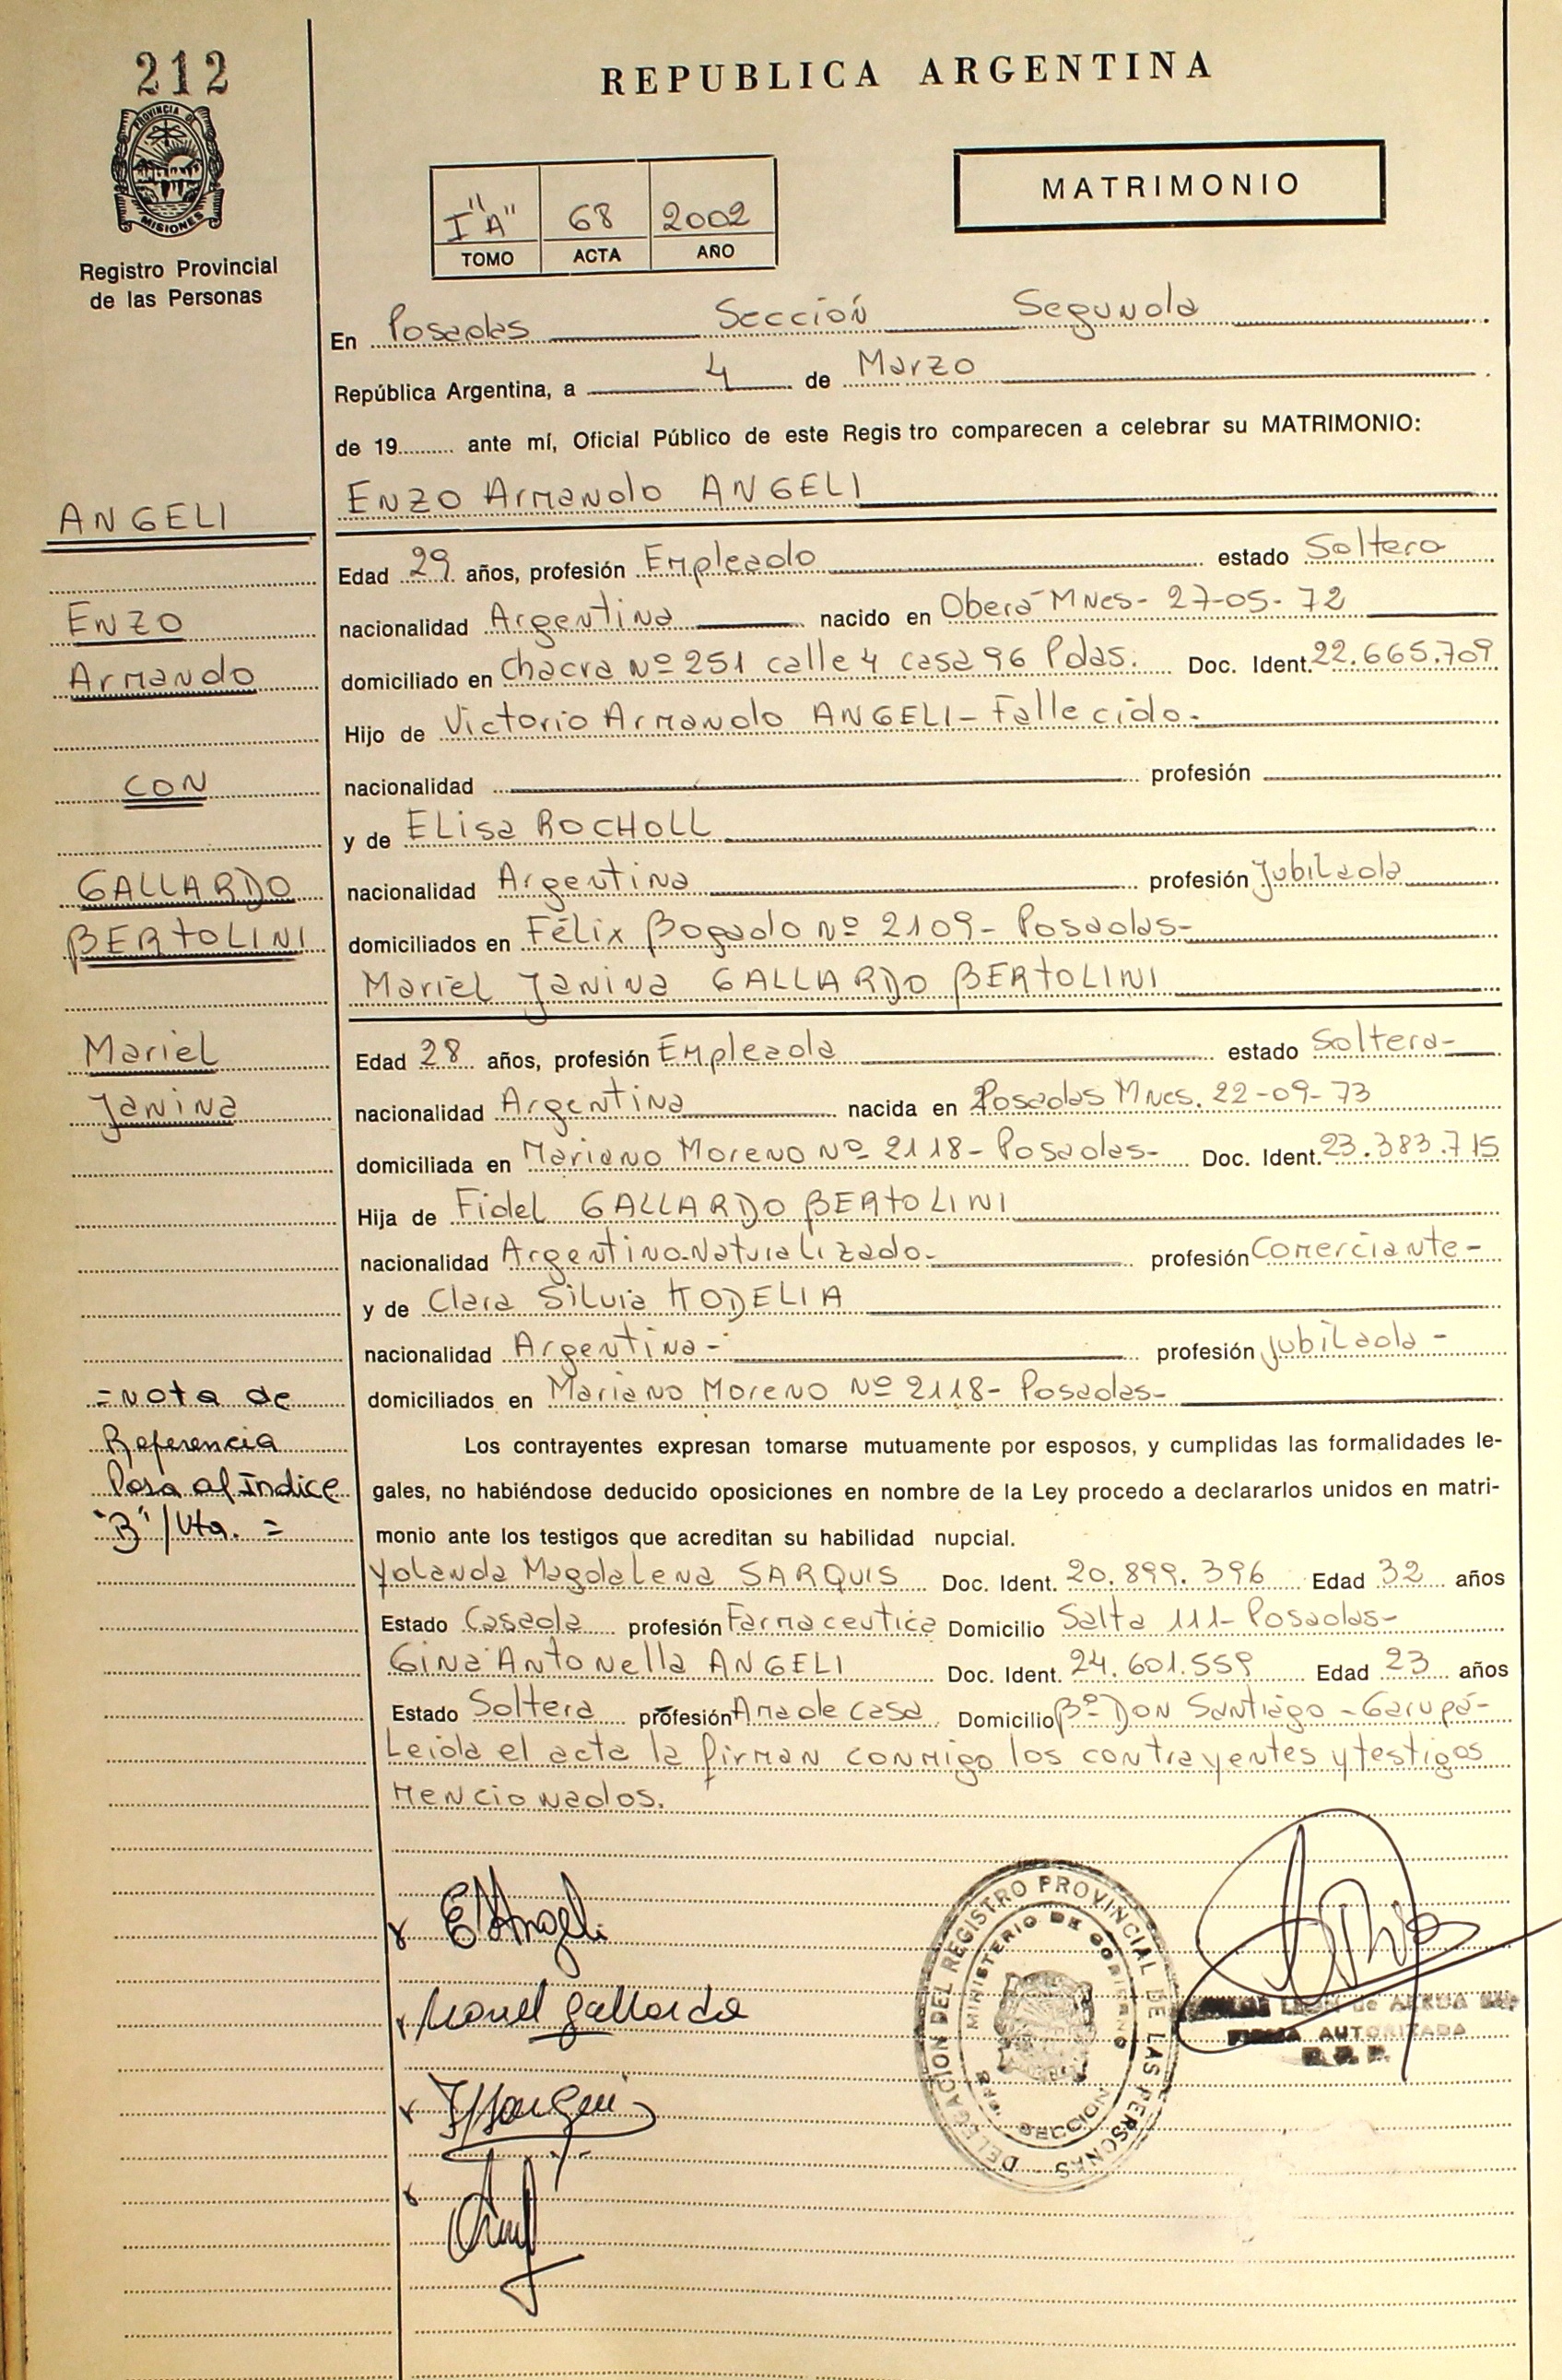 212
PROVINCIA DE
MISIONES
Registro Provincial
de las Personas
REPUBLICA ARGENTINA
MATRIMONIO
I "A" 68 2002
TOMO ACTA AÑO
En Posadas Sección Segunda
República Argentina, a 4 de Marzo
de 19 ante mí, Oficial Público de este Regis tro comparecen a celebrar su MATRIMONIO:
Enzo Armando ANGELI
Edad 29 años, profesión Empleado estado Soltero
nacionalidad Argentina nacido en Oberá Mnes- 27-05-72
domiciliado en Chacra Nº 251 calle 4 casa 96 Pdas. Doc. Ident. 22.665.709
Hijo de Victorio Armando ANGELI- Fallecido-
nacionalidad profesión
y de Elisa ROCHOLL
nacionalidad Argentina profesión Jubilada
domiciliados en Félix Bogado Nº 2109- Posadas-
Mariel Janina GALLARDO BERTOLINI
Edad 28 años, profesión Empleada estado Soltera-
nacionalidad Argentina nacida en Posadas Mnes. 22-09-73
domiciliada en Mariano Moreno Nº 2118- Posadas- Doc. Ident. 23.383.715
Hija de Fidel GALLARDO BERTOLINI
nacionalidad Argentino-Naturalizado- profesión Comerciante-
y de Clara Silvia KODELIA
nacionalidad Argentina- profesión Jubilada-
domiciliados en Mariano Moreno Nº 2118- Posadas-
Los contrayentes expresan tomarse mutuamente por esposos, y cumplidas las formalidades le-
gales, no habiéndose deducido oposiciones en nombre de la Ley procedo a declararlos unidos en matri-
monio ante los testigos que acreditan su habilidad nupcial.
Yolanda Magdalena SARQUIS Doc. Ident. 20.899.396 Edad 32 años
Estado Casada profesión Farmaceutica Domicilio Salta 111- Posadas-
Gina Antonella ANGELI Doc. Ident. 24.601.559 Edad 23 años
Estado Soltera profesión Ama de casa Domicilio Bº Don Santiago - Garupá-
Leida el acta la firman conmigo los contrayentes y testigos
mencionados.
ANGELI
Enzo
Armando
CON
GALLARDO
BERTOLINI
Mariel
Janina
=Nota de
Referencia
Pasa al Indice
"B" / Vta. =
E Angeli
Mariel Gallardo
DELEGACION DEL REGISTRO PROVINCIAL DE LAS PERSONAS
MINISTERIO DE GOBIERNO
SECCION
FIRMA AUTORIZADA